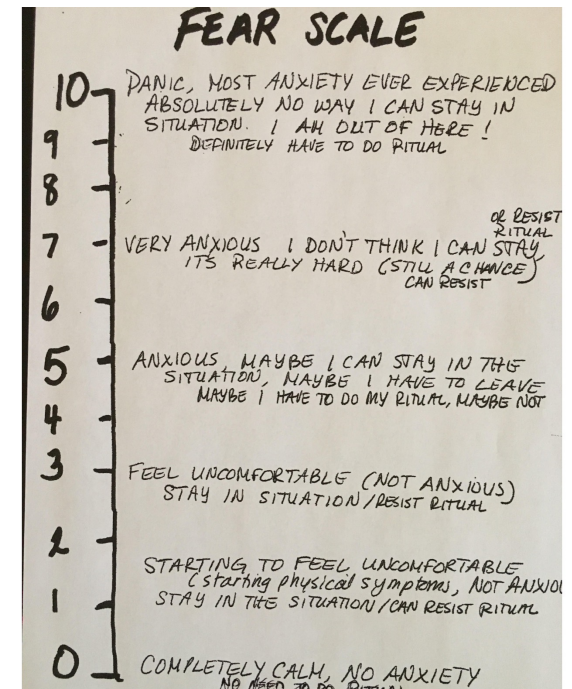 FEAR SCALE
10 PANIC, MOST ANXIETY EVER EXPERIENCED
ABSOLUTELY NO WAY I CAN STAY IN
SITUATION. I AM OUT OF HERE!
9 DEFINITELY HAVE TO DO RITUAL
8
OR RESIST
RITUAL
7 VERY ANXIOUS I DON'T THINK I CAN STAY,
IT'S REALLY HARD (STILL A CHANCE)
CAN RESIST
6
5 ANXIOUS, MAYBE I CAN STAY IN THE
SITUATION, MAYBE I HAVE TO LEAVE
MAYBE I HAVE TO DO MY RITUAL, MAYBE NOT
4
3 FEEL UNCOMFORTABLE (NOT ANXIOUS)
STAY IN SITUATION/RESIST RITUAL
2
STARTING TO FEEL UNCOMFORTABLE
(starting physical symptoms, NOT ANXIOU
1 STAY IN THE SITUATION/CAN RESIST RITUAL
0 COMPLETELY CALM, NO ANXIETY
NO NEED TO DO RITUAL